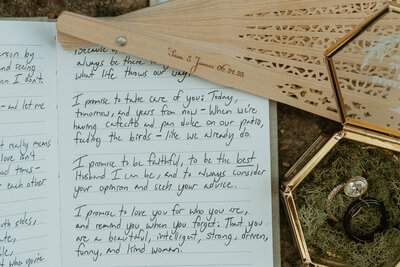 person by
and seeing
hen I don't
- and let me
t really means
love isn't
ood times -
each other
both sides,
Because of
always be there
what life throws our way.
I promise to take care of you: Today,
tomorrow, and years from now - When we're
having cafecito and pan dulce on our patio,
feeding the birds - like we already do.
I promise to be faithful, to be the best
Husband I can be, and to always consider
your opinion and seek your advice.
I promise to love you for who you are,
and remind you, when you forget: That you
are a beautiful, intelligent, strong, driven,
funny, and kind woman.
& James 06.21.25